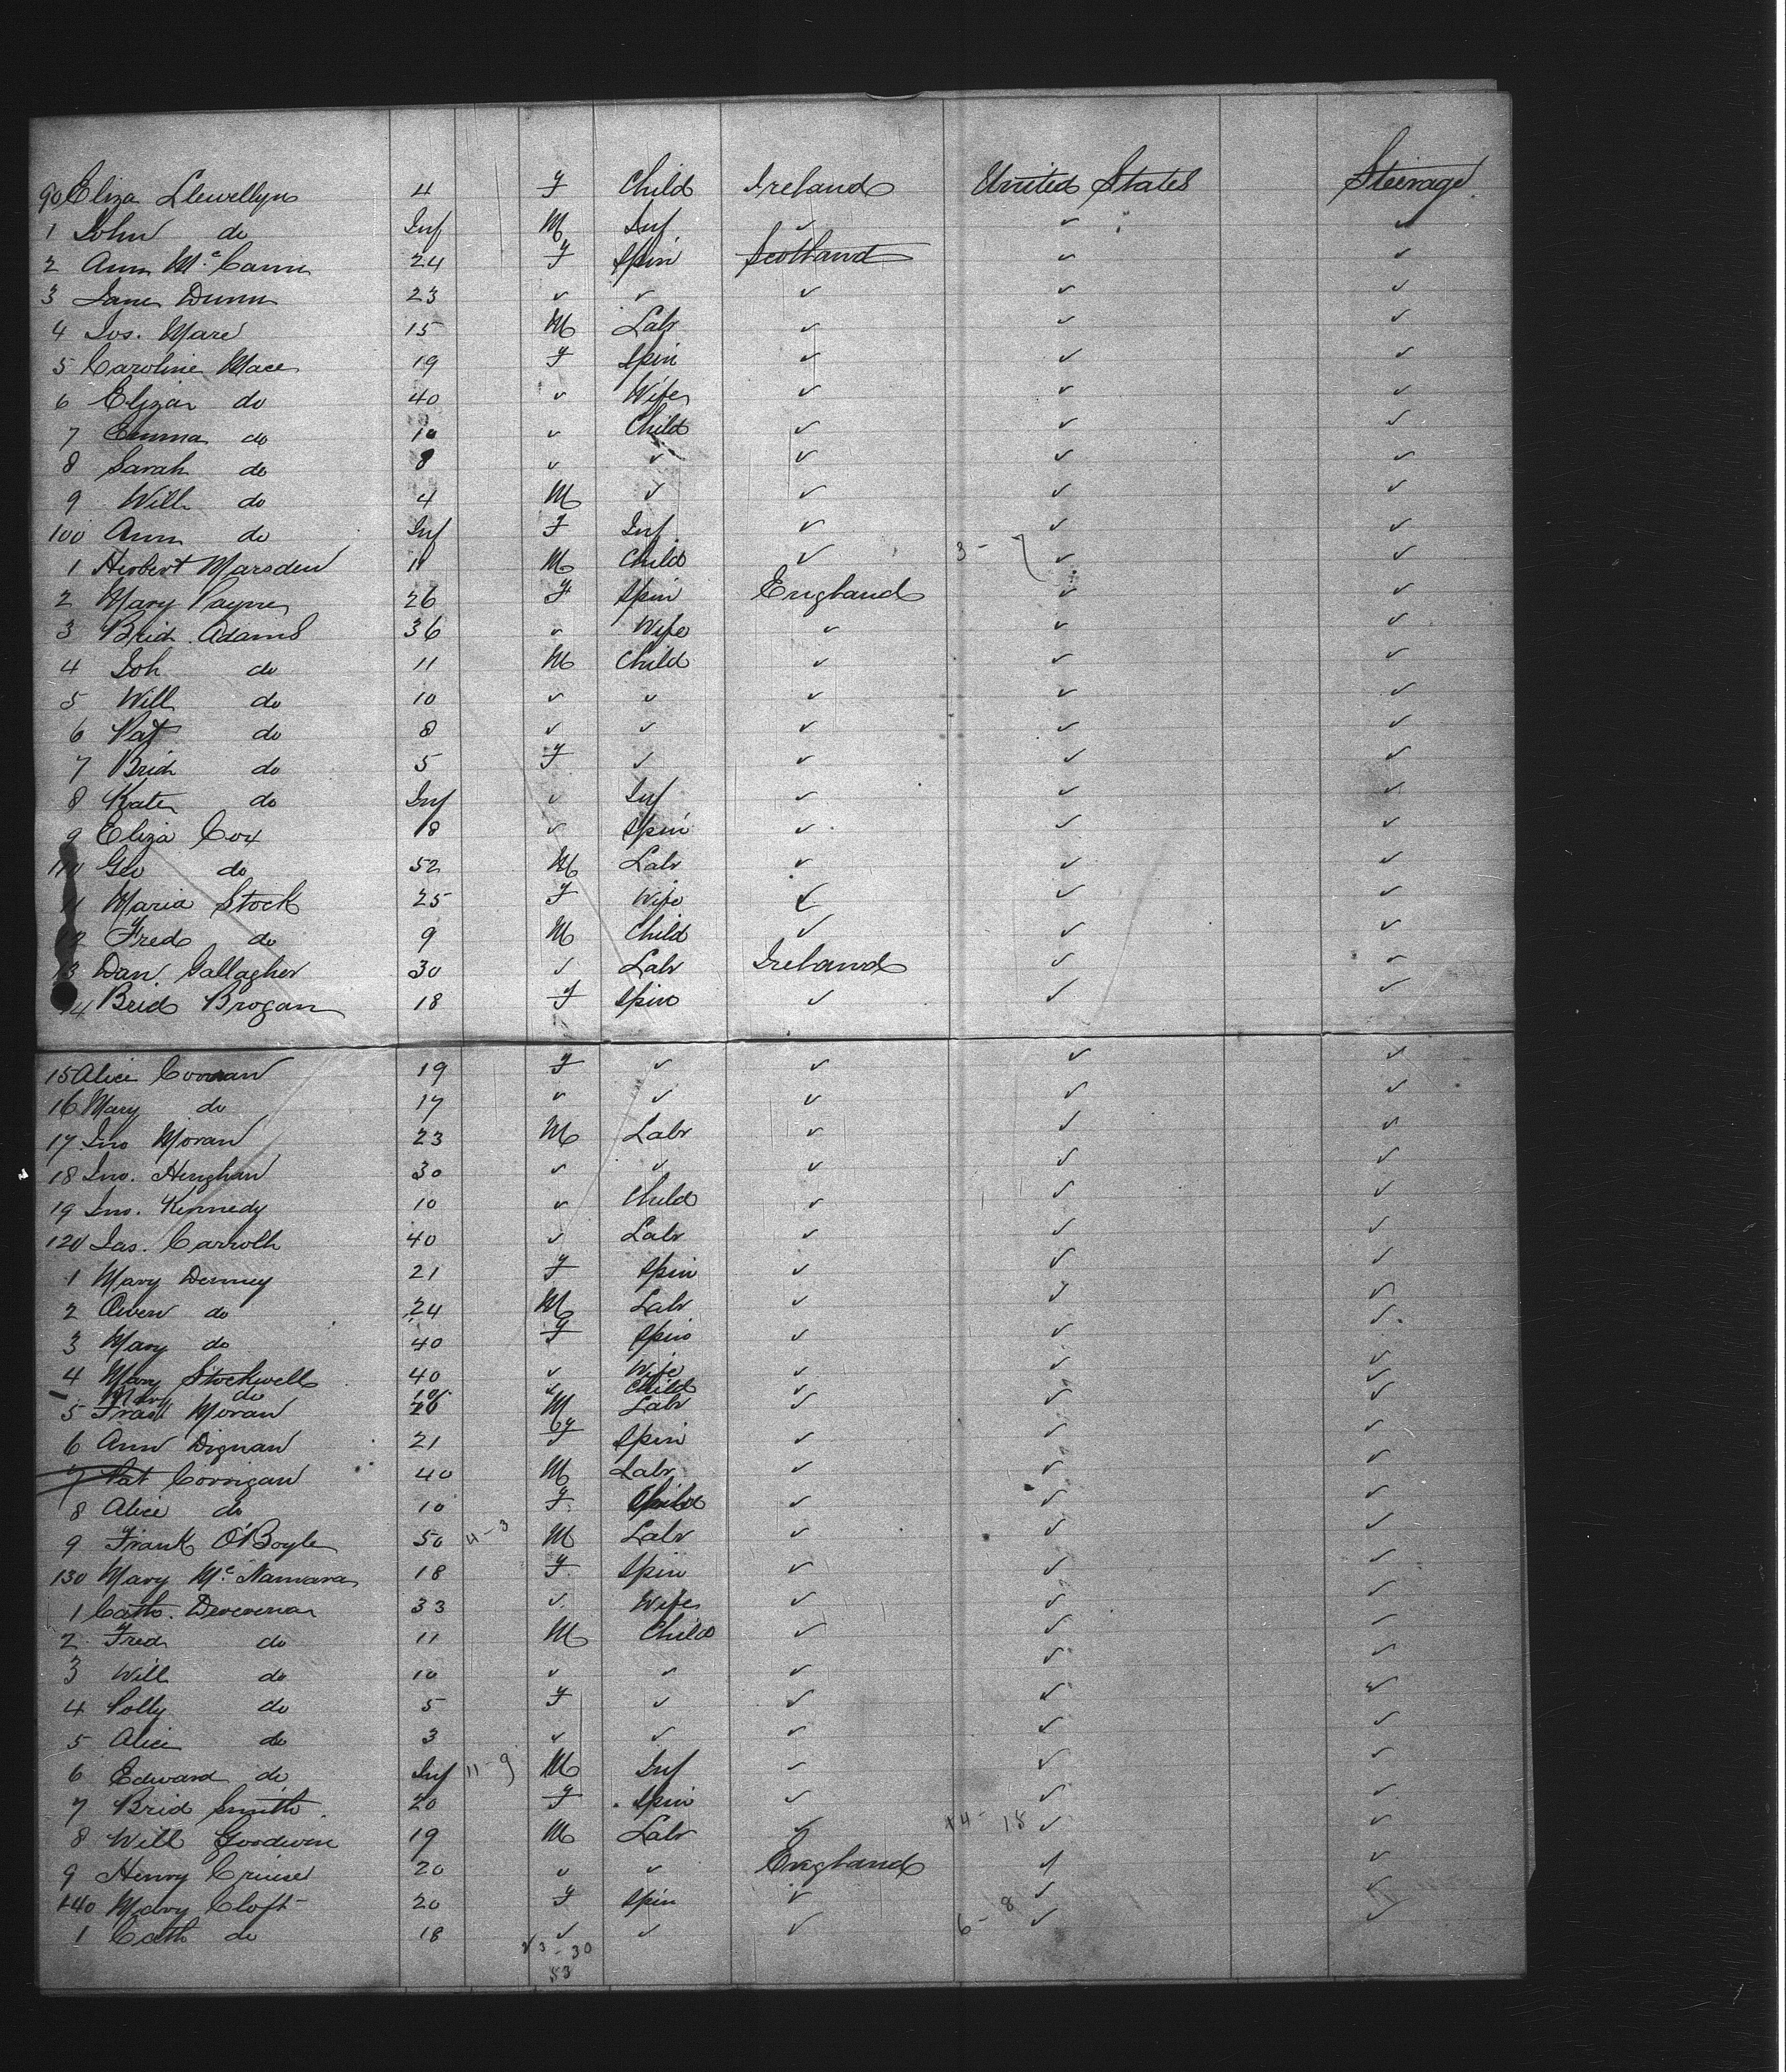 90 Eliza Llewellyn 4 F Child Ireland United States Steerage
1 John do Inf M Inf ✓ ✓ ✓
2 Ann McCann 24 F Spin Scotland ✓ ✓
3 Jane Dunn 23 ✓ ✓ ✓ ✓ ✓
4 Jos. Mare 15 M Labr ✓ ✓ ✓
5 Caroline Mace 19 F Spin ✓ ✓ ✓
6 Eliza do 40 ✓ Wife ✓ ✓ ✓
7 Emma do 10 ✓ Child ✓ ✓ ✓
8 Sarah do 8 ✓ ✓ ✓ ✓ ✓
9 Will do 4 M ✓ ✓ ✓ ✓
100 Ann do Inf F Inf ✓ ✓ ✓
1 Herbert Marsden 11 M Child ✓ 3 - 7 ✓ ✓
2 Mary Payne 26 F Spin England ✓ ✓
3 Brid Adams 36 ✓ Wife ✓ ✓ ✓
4 Joh do 11 M Child ✓ ✓ ✓
5 Will do 10 ✓ ✓ ✓ ✓ ✓
6 Pat do 8 ✓ ✓ ✓ ✓ ✓
7 Brid do 5 F ✓ ✓ ✓ ✓
8 Kate do Inf ✓ Inf ✓ ✓ ✓
9 Eliza Cox 18 ✓ Spin ✓ ✓ ✓
110 Geo do 52 M Labr ✓ ✓ ✓
11 Maria Stock 25 F Wife ✓ ✓ ✓
12 Fred do 9 M Child ✓ ✓ ✓
13 Dan Gallagher 30 ✓ Labr Ireland ✓ ✓
14 Brid Brogan 18 F Spin ✓ ✓ ✓
15 Alice 19 F ✓ ✓ ✓ ✓
16 Mary do 17 ✓ ✓ ✓ ✓ ✓
17 Jno Moran 23 M Labr ✓ ✓ ✓
18 Jno. Henghan 30 ✓ ✓ ✓ ✓ ✓
19 Jno. Kennedy 10 ✓ Child ✓ ✓ ✓
120 Jas. Carroll 40 ✓ Labr ✓ ✓ ✓
1 Mary Denney 21 F Spin ✓ ✓ ✓
2 Owen do 24 M Labr ✓ ✓ ✓
3 Mary do 40 F Spin ✓ ✓ ✓
4 Mary Stockwell 40 ✓ Wife ✓ ✓ ✓
– Mary do 10 ✓ Child ✓ ✓
5 Frank Moran 20 M Labr ✓ ✓ ✓
6 Ann Dignan 21 F Spin ✓ ✓ ✓
7 Pat Corrigan 40 M Labr ✓ ✓ ✓
8 Alice do 10 F Child ✓ ✓ ✓
9 Frank O'Boyle 50 4 - 3 M Labr ✓ ✓ ✓
130 Mary McNamara 18 F Spin ✓ ✓ ✓
1 Cath. 33 ✓ Wife ✓ ✓ ✓
2 Fred do 11 M Child ✓ ✓ ✓
3 Will do 10 ✓ ✓ ✓ ✓ ✓
4 Polly do 5 F ✓ ✓ ✓ ✓
5 Alice do 3 ✓ ✓ ✓ ✓ ✓
6 Edward do Inf 11 - 9 M Inf ✓ ✓ ✓
7 Brid Smith 20 F Spin ✓ ✓ ✓
8 Will Goodwin 19 M Labr ✓ 14 - 18 ✓ ✓
9 Henry Cruise 20 ✓ ✓ England ✓ ✓
140 Mary Cloft 20 F Spin ✓ ✓ ✓
1 Cath do 18 ✓ ✓ ✓ 6 - 8 ✓ ✓
23 - 30
53